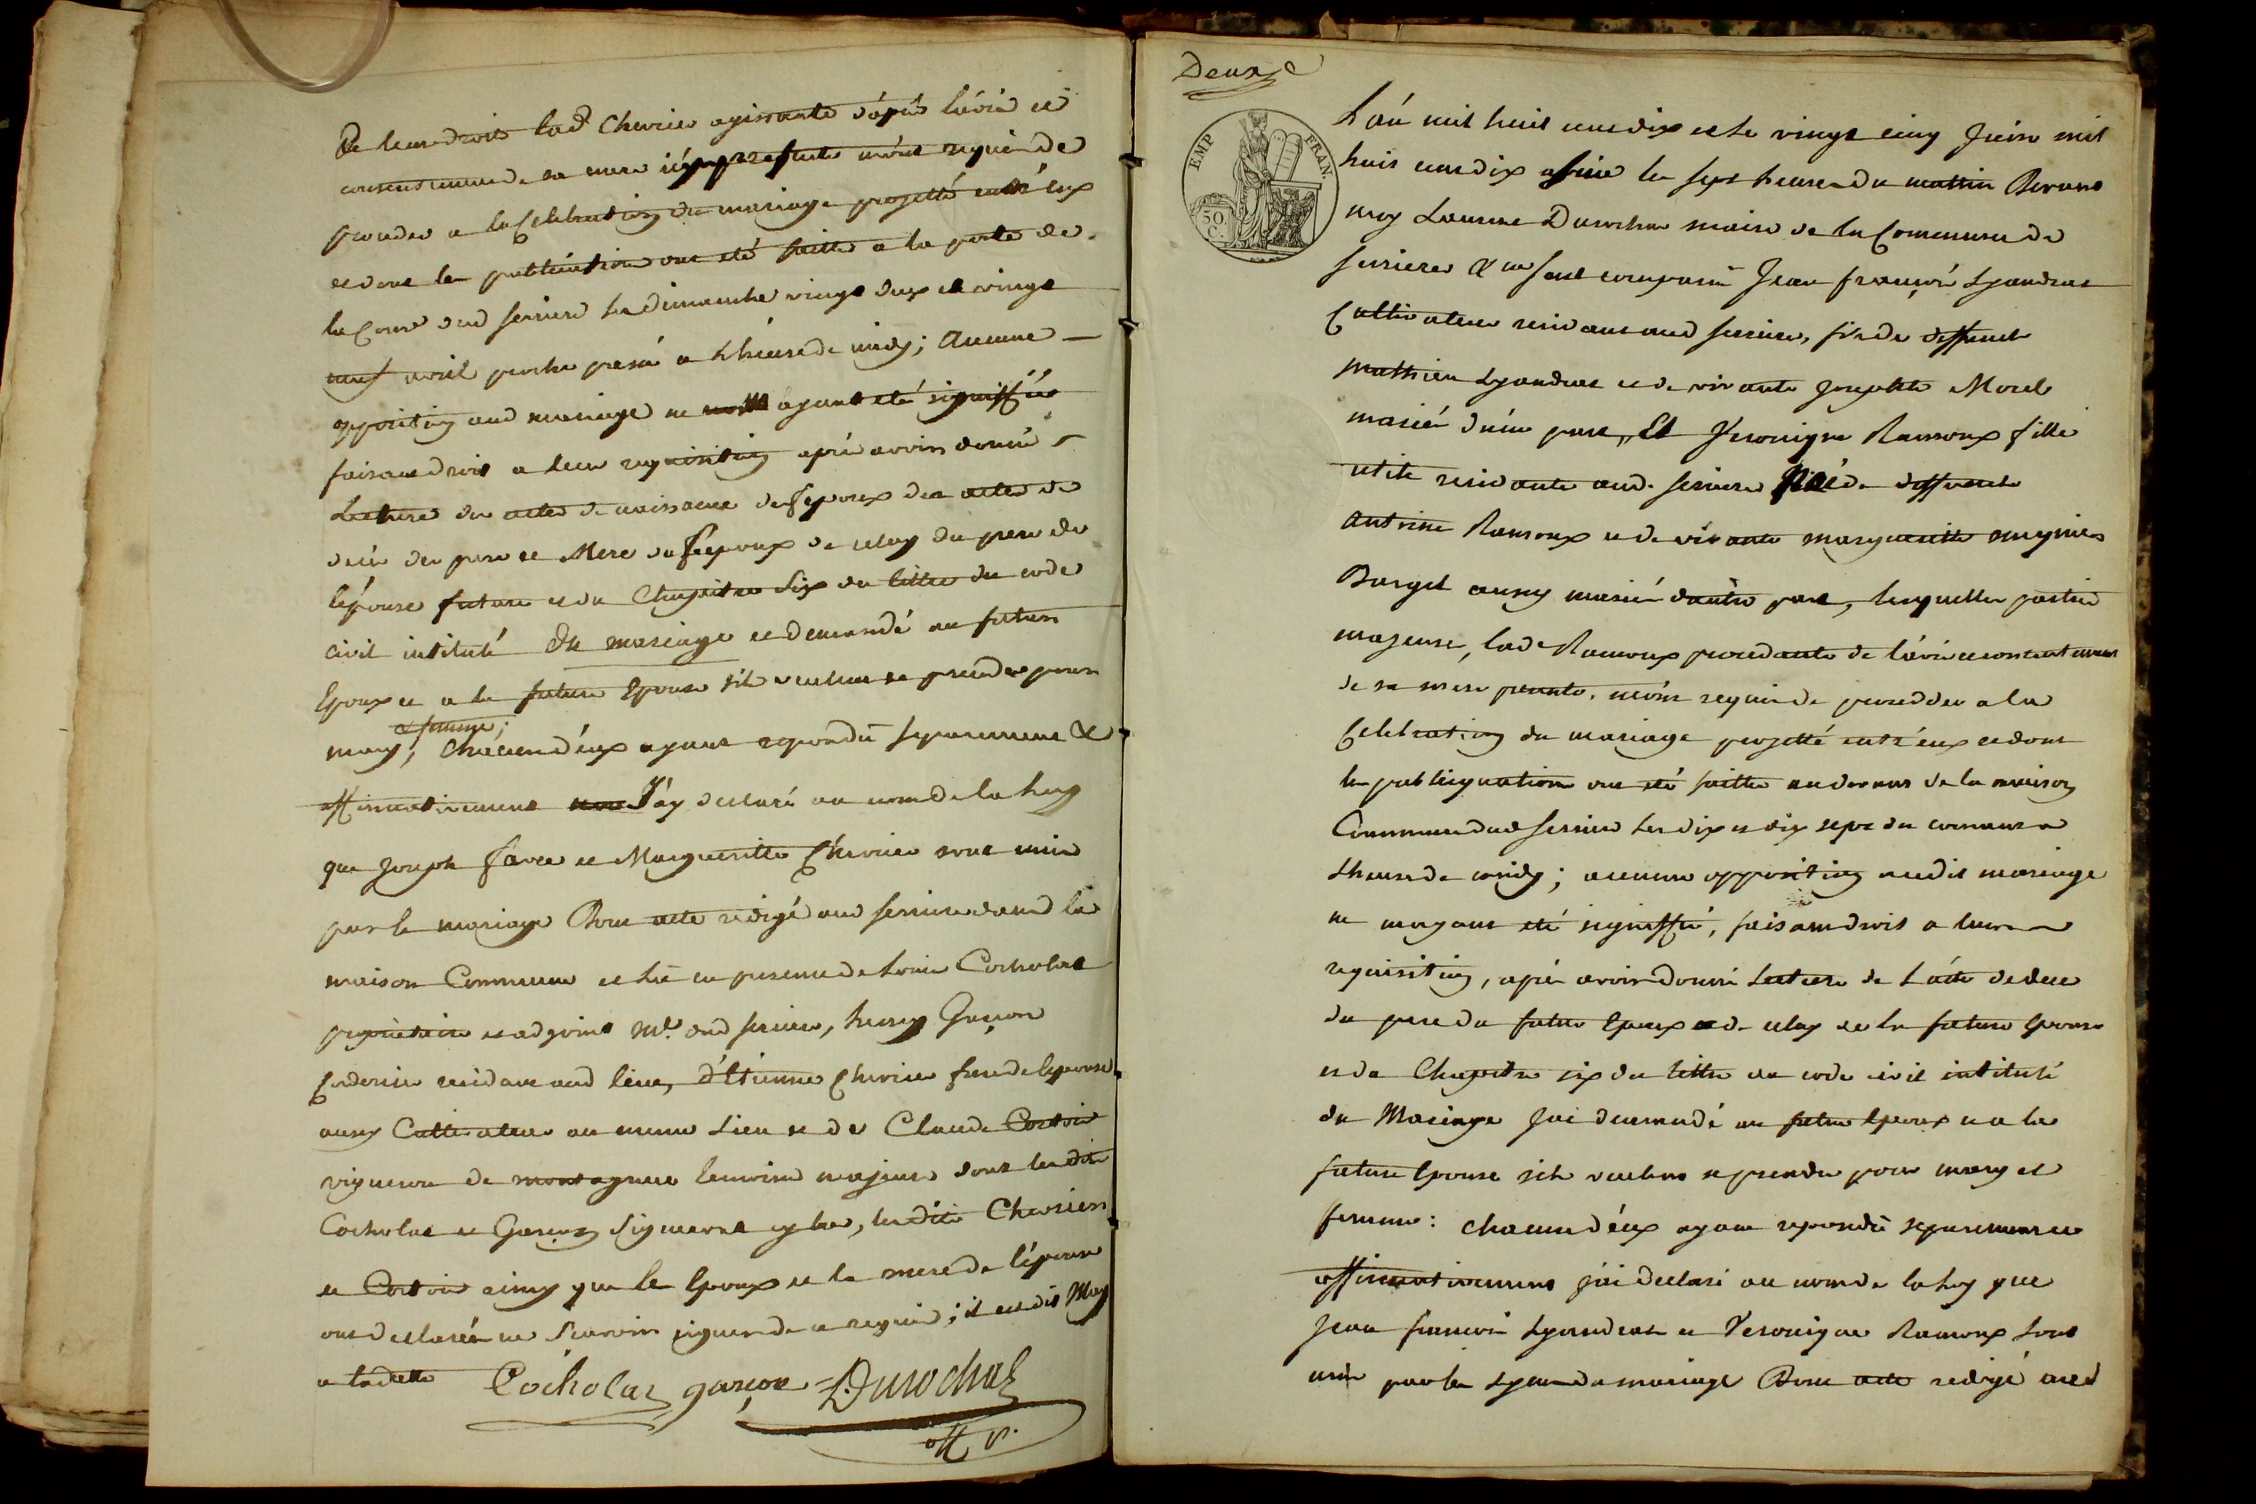 De leurs droits lad. Chevrier agissante d'après l'avis et
consentement de sa mere icy presente m'ont requis de
proceder a la Celebration du mariage projetté entré eux
et dont les publications ont été faittes a la porte de
la Com. dud serriere les dimanche vingt deux et vingt
neuf avril proche passé a L'heure de midy; Aucune
opposition aud mariage ne ayant été signiffiée
faisant droit a leur requisition aprés avoir donné
Lecture des actes de naissance des epoux des actes de
décés des pere et Mere de l'epoux de celuy du pere de
l'épouse future et du Chapitre Six du tittre du code
civil intitulé du mariage et demandé au futur
Epoux et a la future Epouse s'ils veullent se prendre pour
& femme;
mary; chacun d'eux ayant repondu separement &
affirmativement J'ay declaré au nom de la Loy
que Joseph favre et Margueritte Chevrier sont unis
par le mariage Dont acte redigé aud serriere dans la
maison Commune et lû en presence de Louis Cocholat
proprietaire et adjoint M.l aud serriere, henry Garçon
Cordonier residant aud lieu, d'Etienne Chevrier frere de lepouse
aussy Cultivateur au meme Lieu et de Claude Cortois
vigneron de montagnieu temoins majeurs dont lesdits
Cocholat et Garçon Signeront cy bas, lesdits Chevrier
et Cortois ainsy que les Epoux et la mere de l'épouse
ont declarés ne Scavoir signer de ce requis; il est dit May
a ladatte Cocholat garçon Durochat
off. p.
Deuxe
EMP FRAN.
50. C.
L'an mil huit cent dix et le vingt cinq Juin mil
huit cent dix a les sept heures du mattin Devant
moy Laurent Durochat maire de la Commune de
serriere & en sont comparus Jean françois Lyandrat
Cultivateur residant aud serriere, fils de deffunct
Mathieu Lyandrat et de vivante Josephte Morel
mariés d'une part, Et Veronique Ramoux fille
residante aud. serriere fille de deffunct
Antoine Ramoux et de vivante margueritte
aussy mariés d'autre part, lesquelles parties
majeure, lad. Ramoux procedante de l'avis et consentement
de sa mere presente, m'ont requis de proceder a la
Celebration du mariage projetté entr'eux et dont
les publiquations ont été faittes au devant de la maison
Commune dud serriere les dix et dix sept du courant a
L'heure de midy; aucune opposition audit mariage
ne mayant été signiffié, faisant droit a leur
requisition, aprés avoir donné Lecture de L'acte de deces
du pere du futur Epoux et de celuy de la future Epouse
et du Chapitre six du tittre du code civil intitulé
du Mariage Jai demandé au futur Epoux et a la
future Epouse sils veullent se prendre pour mary et
femme: chacun d'eux ayant repondu separement et
affirmativement j'ai declaré au nom de la Loy que
Jean francois Lyandrat et Veronique Ramoux sont
unis par les Lyens du mariage Dont acte redigé aud